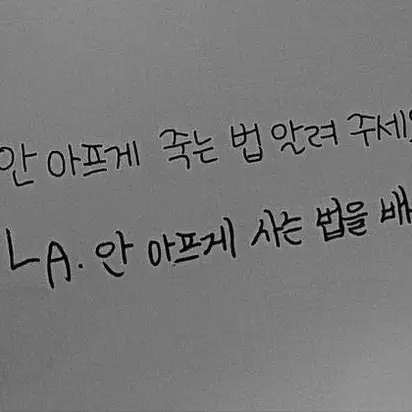 안 아프게 죽는 법 알려 주세
LA. 안 아프게 사는 법을 배